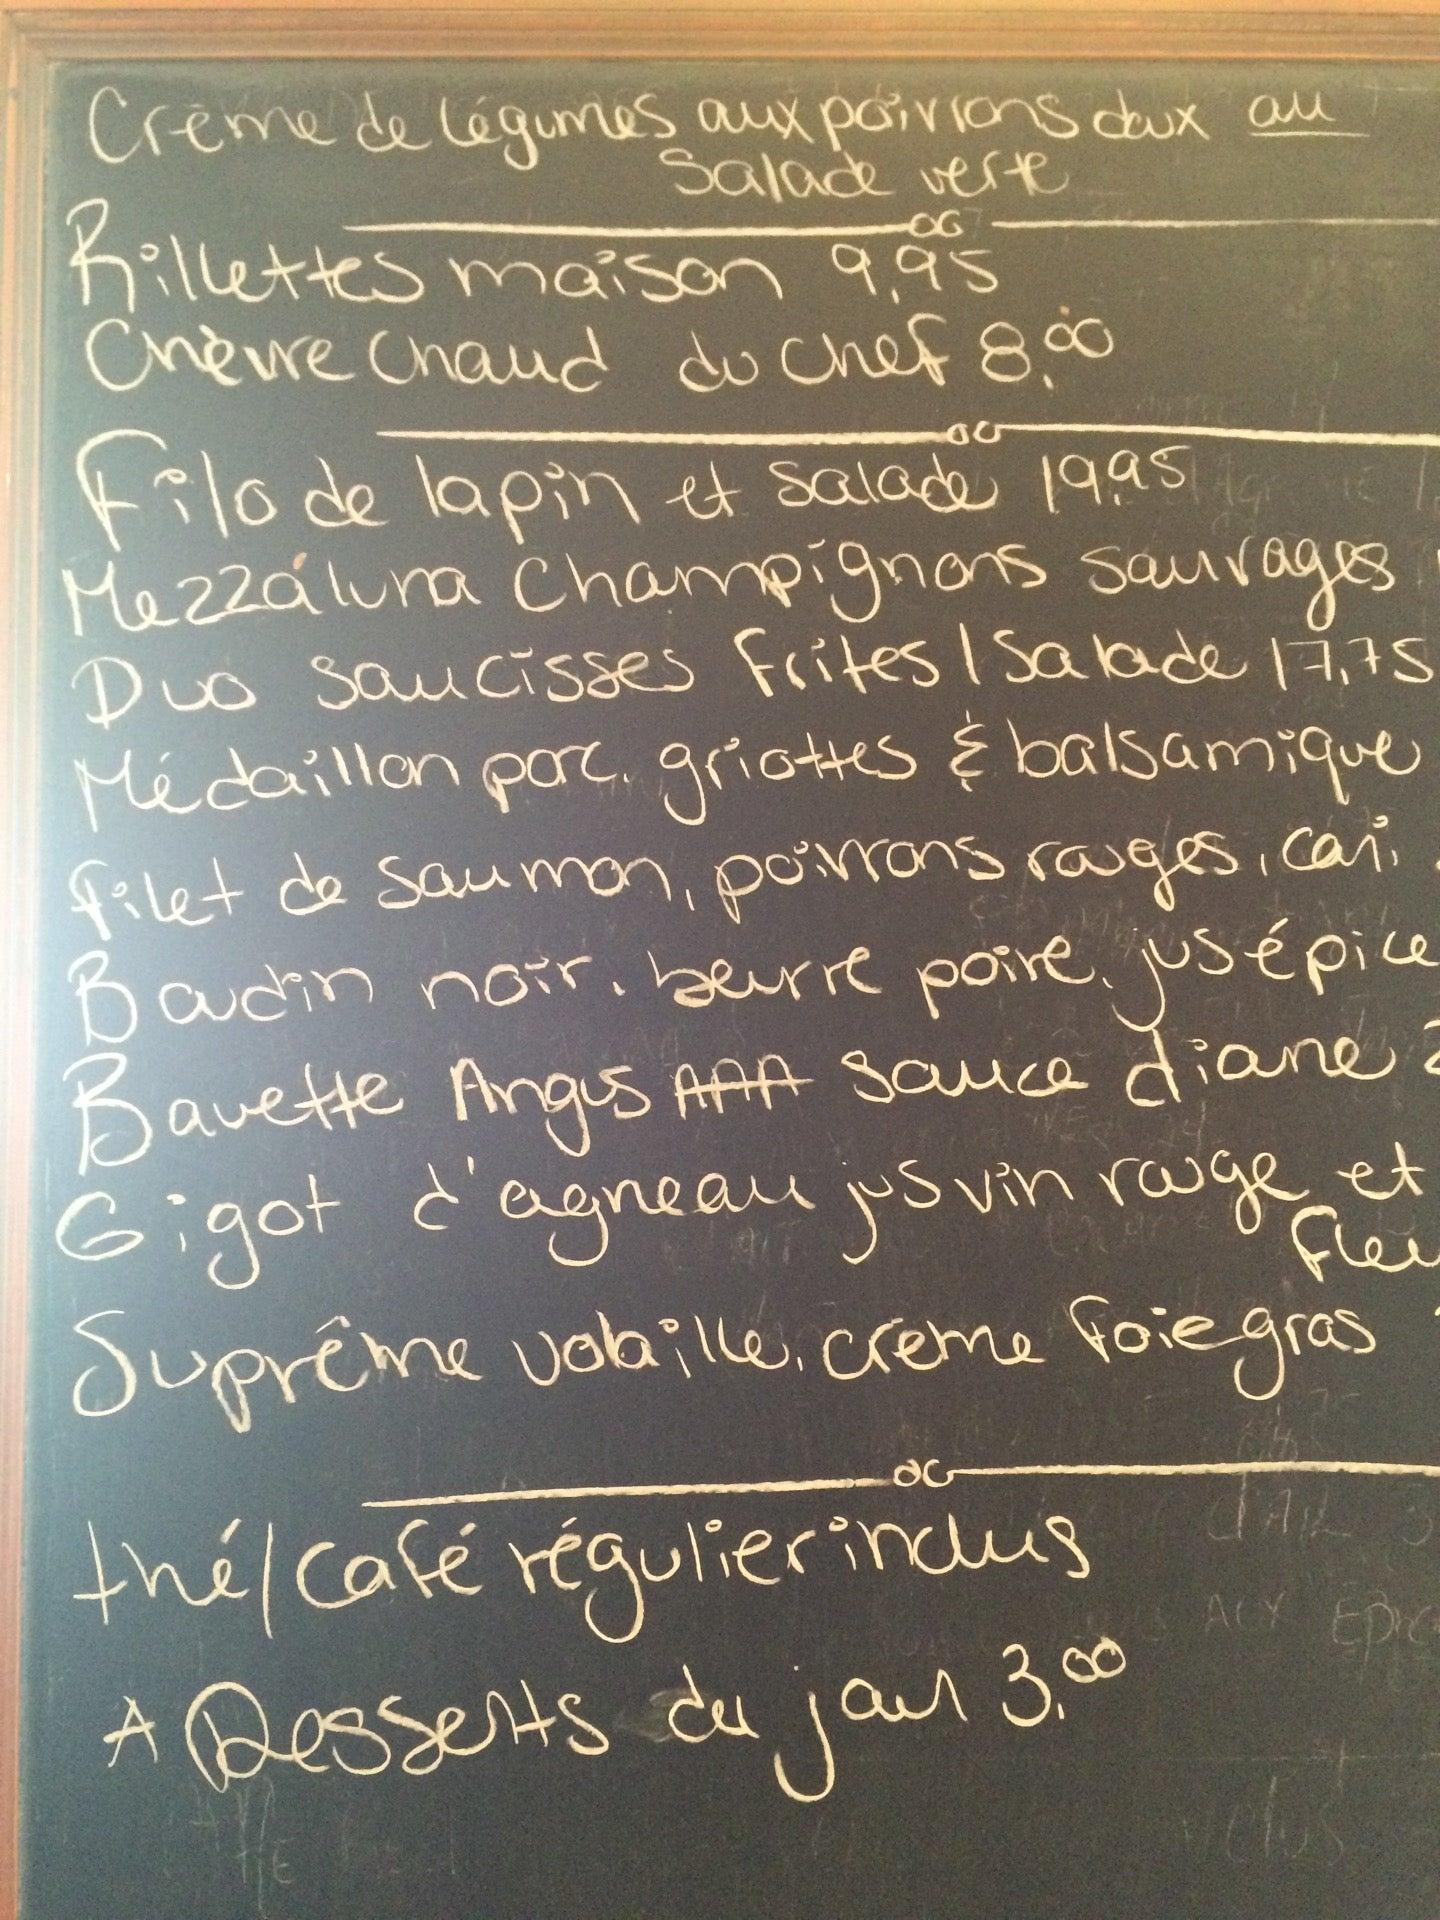 Crème de légumes aux poivrons doux ou
Salade verte
Rillettes maison 9,95
Chèvre chaud du chef 8,00
Filo de lapin et salade 19,95
Mezzáluna Champignons sauvages
Duo saucisses Frites / Salade 17,75
Médaillon porc, griottes & balsamique
Filet de saumon, poivrons rouges, cari,
Boudin noir, beurre poire, jus épice
Bavette Angus AAA sauce diane 2
Gigot d'agneau jus vin rouge et
Fleu
Suprême volaille, crème foie gras
thé/café régulier inclus
A Desserts du jour 3,00